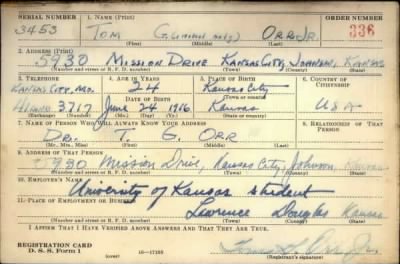 SERIAL NUMBER 1. NAME (Print) ORDER NUMBER
3453 TOM G. (initial only) ORR JR. 336
(First) (Middle) (Last)
2. ADDRESS (Print)
5930 MISSION DRIVE KANSAS CITY, JOHNSON, KANSAS
(Number and street or R. F. D. number) (Town) (County) (State)
3. TELEPHONE 4. AGE IN YEARS 5. PLACE OF BIRTH 6. COUNTRY OF CITIZENSHIP
KANSAS CITY, MO. 24 Kansas City
DATE OF BIRTH (Town or county)
3717 June 24 1916 Kansas USA
(Exchange) (Number) (Mo.) (Day) (Yr.) (State or country)
7. NAME OF PERSON WHO WILL ALWAYS KNOW YOUR ADDRESS
DR. T. G. ORR
(Mr., Mrs., Miss) (First) (Middle) (Last)
8. ADDRESS OF THAT PERSON
5930 Mission Drive, Kansas City, Johnson, Kansas
(Number and street or R. F. D. number) (Town) (County) (State)
10. EMPLOYER'S NAME
University of Kansas student
11. PLACE OF EMPLOYMENT OR BUSINESS
Lawrence Douglas Kansas
(Number and street or R. F. D. number) (Town) (County) (State)
I AFFIRM THAT I HAVE VERIFIED ABOVE ANSWERS AND THAT THEY ARE TRUE.
REGISTRATION CARD
D. S. S. Form 1 (over) 16—17105 (Registrant's signature)